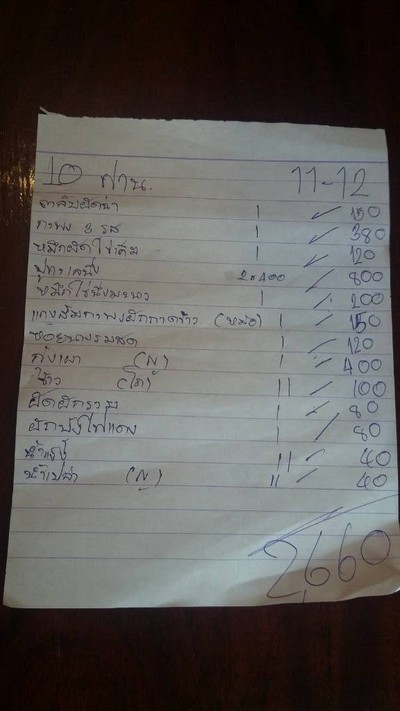 10 ท่าน. 11-12
1 ✓ 150
กะพง 3 รส 1 ✓ 380
หมึกผัดไข่เค็ม 1 ✓ 120
ปูทะเลนึ่ง 2x400 ✓ 800
หมึกไข่นึ่งมะนาว 1 ✓ 200
แกงส้มกะพงผักกาดขาว (หม้อ) 1 ✓ 150
หอยนางรมสด 1 ✓ 120
กุ้งเผา (N) 1 ✓ 400
ข้าว (โถ) 11 ✓ 100
ผัดผักรวม 1 ✓ 80
ผักบุ้งไฟแดง 1 / 80
น้ำแข็ง 11 ✓ 40
น้ำเปล่า (N) 11 ✓ 40
2,660